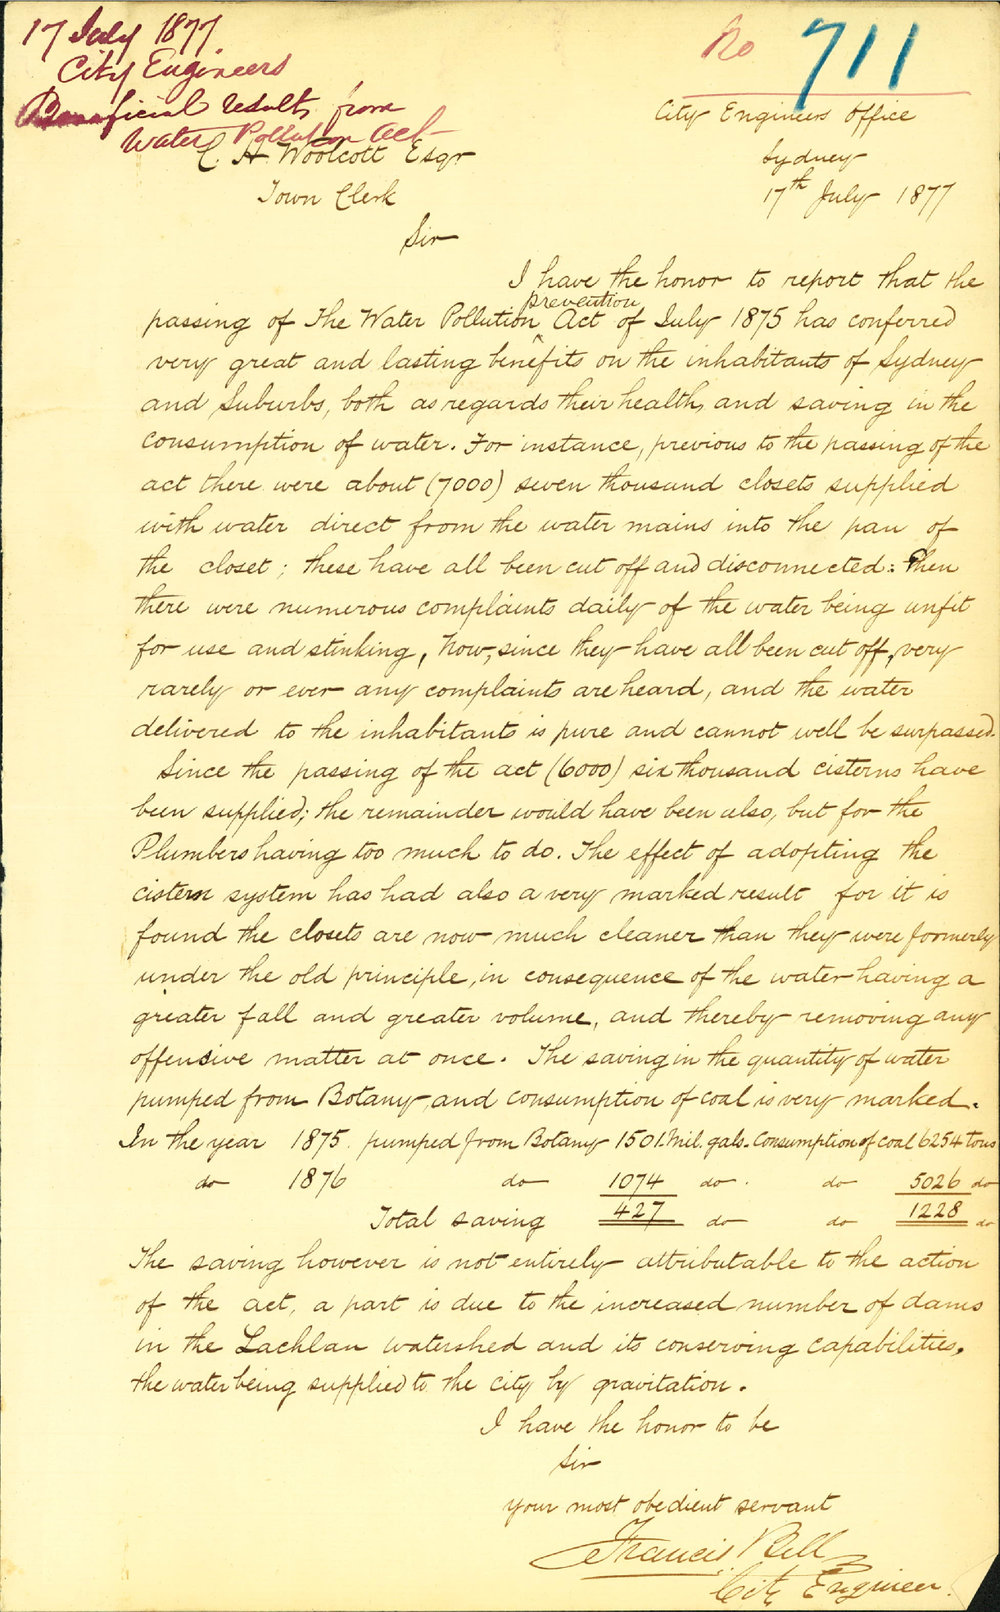 17 July 1877
City Engineers
Beneficial results from
Water Pollution Act
No 711
City Engineers Office
Sydney
17th July 1877
C. H. Woolcott Esqr
Town Clerk
Sir
I have the honor to report that the
passing of The Water Pollution prevention Act of July 1875 has conferred
very great and lasting benefits on the inhabitants of Sydney
and Suburbs, both as regards their health, and saving in the
consumption of water. For instance, previous to the passing of the
act there were about (7000) seven thousand closets supplied
with water direct from the water mains into the pan of
the closet; these have all been cut off and disconnected: Then
there were numerous complaints daily of the water being unfit
for use and stinking, Now, since they have all been cut off, very
rarely or ever any complaints are heard, and the water
delivered to the inhabitants is pure and cannot well be surpassed.
Since the passing of the act (6000) six thousand cisterns have
been supplied; the remainder would have been also, but for the
Plumbers having too much to do. The effect of adopting the
cistern system has had also a very marked result for it is
found the closets are now much cleaner than they were formerly
under the old principle, in consequence of the water having a
greater fall and greater volume, and thereby removing any
offensive matter at once. The saving in the quantity of water
pumped from Botany, and consumption of coal is very marked.
In the year 1875 pumped from Botany 1501 Mil. gals. Consumption of coal 6254 tons
do 1876 do 1074 do. do 5026 do
Total saving 427 do do 1228 do
The saving however is not entirely attributable to the action
of the act, a part is due to the increased number of dams
in the Lachlan watershed and its conserving capabilities,
the water being supplied to the city by gravitation.
I have the honor to be
Sir
your most obedient servant
Francis Bell
City Engineer